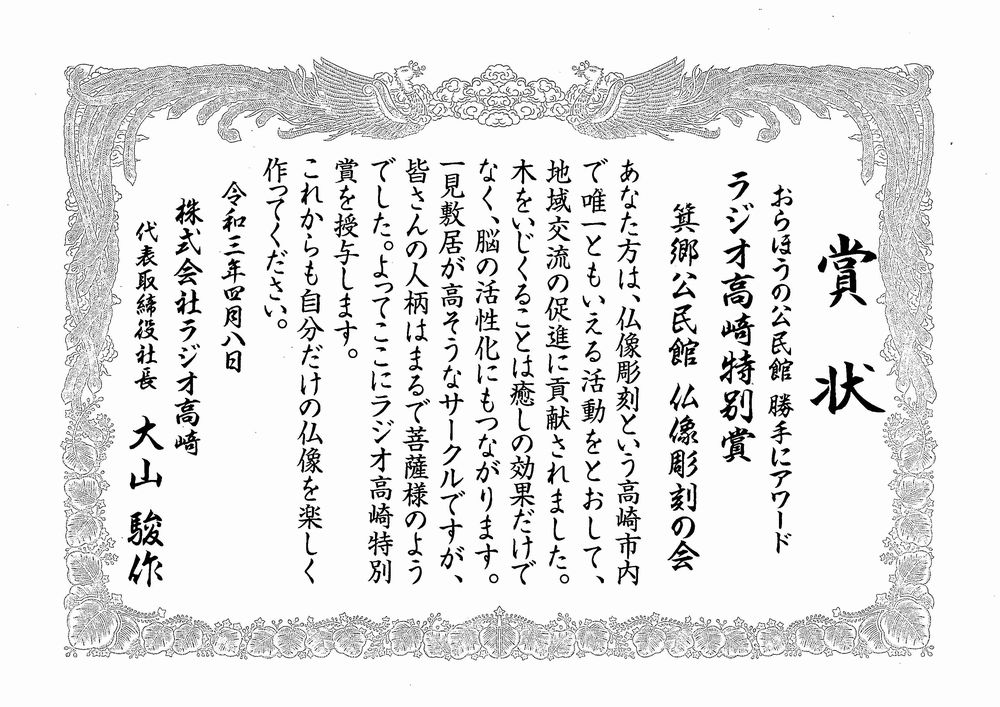 賞状
おらほうの公民館 勝手にアワード
ラジオ高崎特別賞
箕郷公民館 仏像彫刻の会
あなた方は、仏像彫刻という高崎市内
で唯一ともいえる活動をとおして、
地域交流の促進に貢献されました。
木をいじくることは癒しの効果だけで
なく、脳の活性化にもつながります。
一見敷居が高そうなサークルですが、
皆さんの人柄はまるで菩薩様のよう
でした。よってここにラジオ高崎特別
賞を授与します。
これからも自分だけの仏像を楽しく
作ってください。
令和三年四月八日
株式会社ラジオ高崎
代表取締役社長 大山 駿作